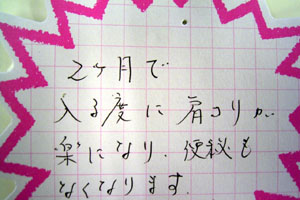 2ヶ月で
入る度に肩コリが
楽になり、便秘も
なくなります.